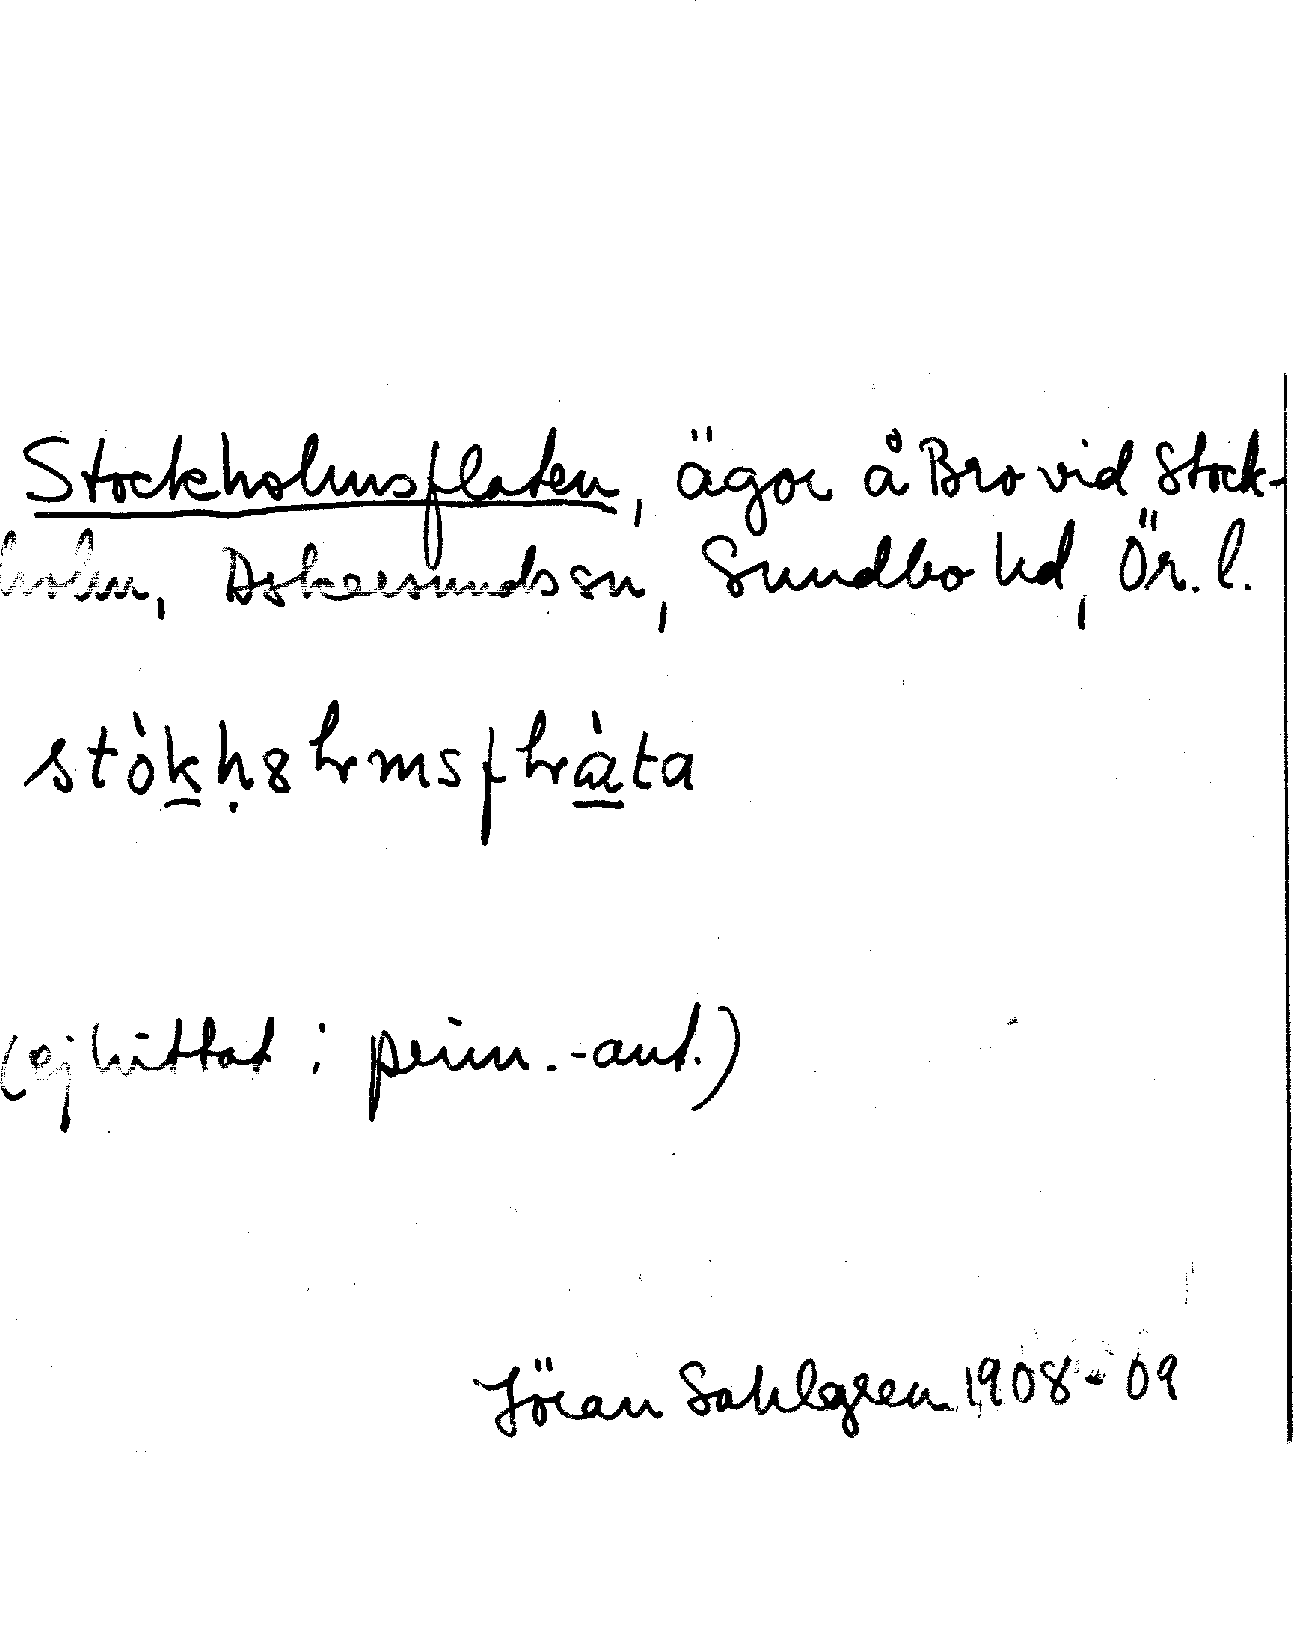 Stockholmsflaten, ägor å Bro vid Stock-
holm, Askersunds sn, Sundbo hd, Ör. l.
stòkḥ8lrmsflràta
(ej hittat i prim.-ant.)
Jöran Sahlgren 1908-09